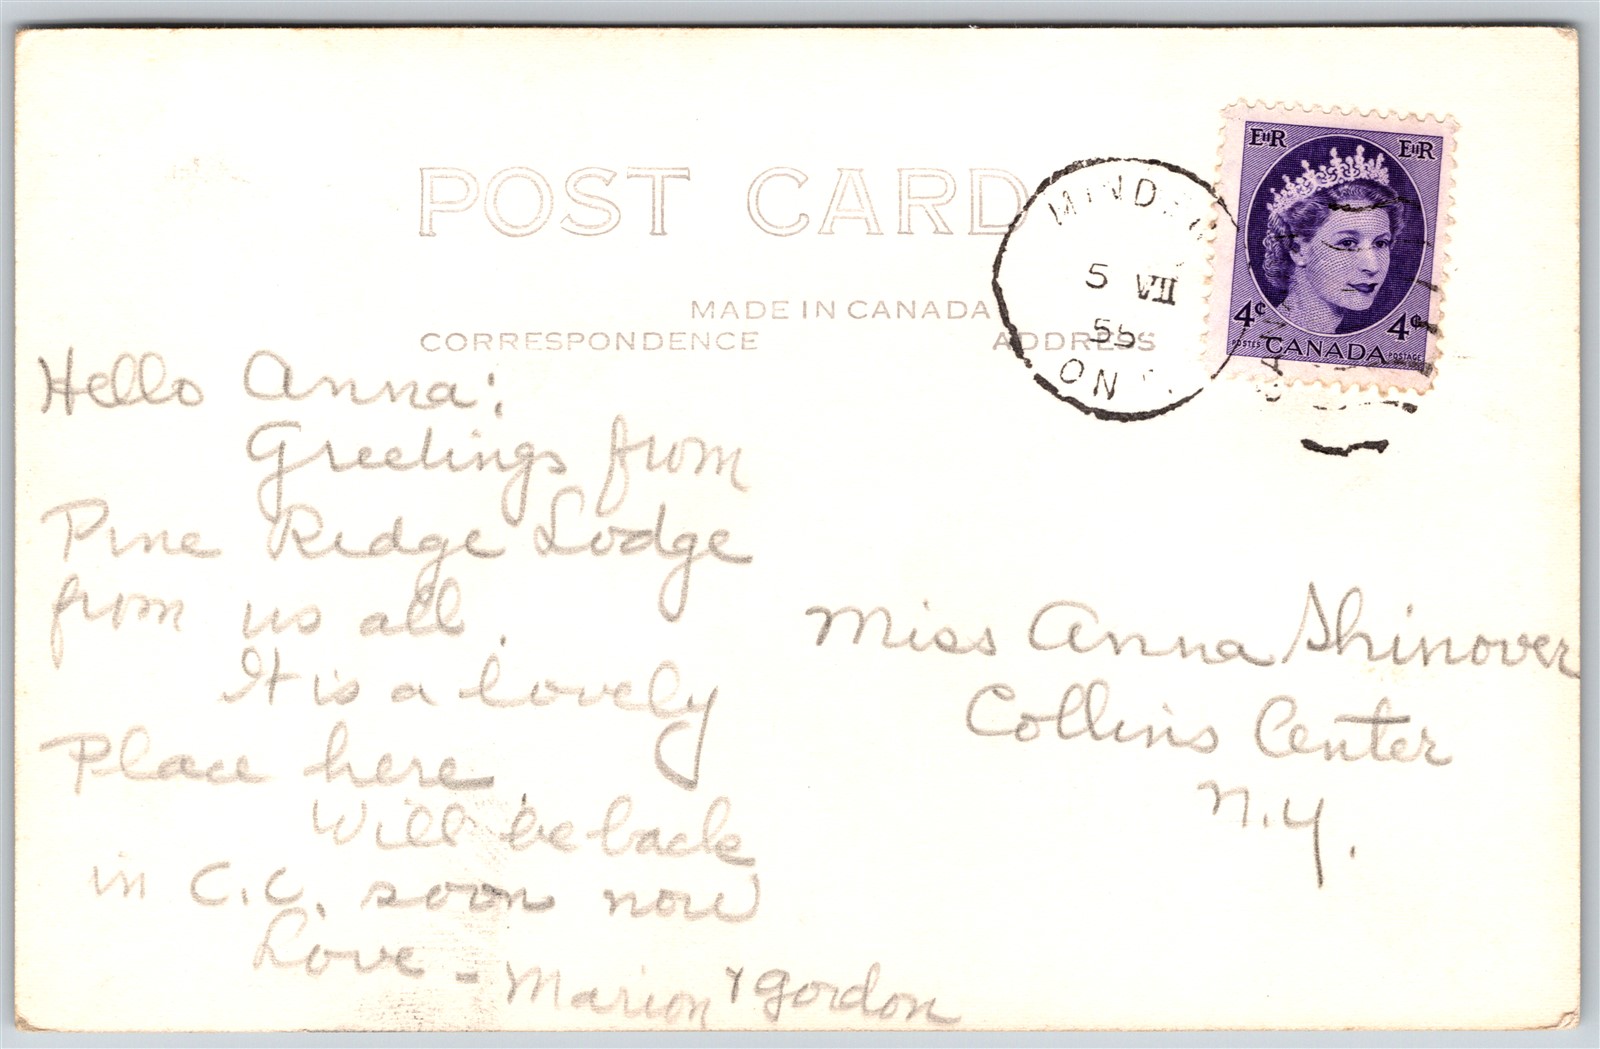 POST CARD
MADE IN CANADA
CORRESPONDENCE
ADDRESS
5 VII
ON
EIIR EIIR
4¢ 4¢
POSTES CANADA POSTAGE
Hello Anna:
Greetings from
Pine Ridge Lodge
from us all.
It is a lovely
Place here.
Will be back
in C.C. soon now
Love - Marion & Gordon
Miss Anna Shinover
Collins Center
N.Y.